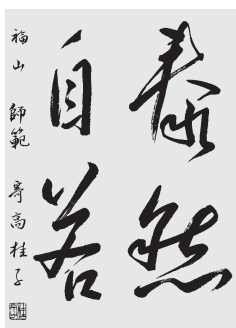 泰然
自若
福山 師範 寄高桂子